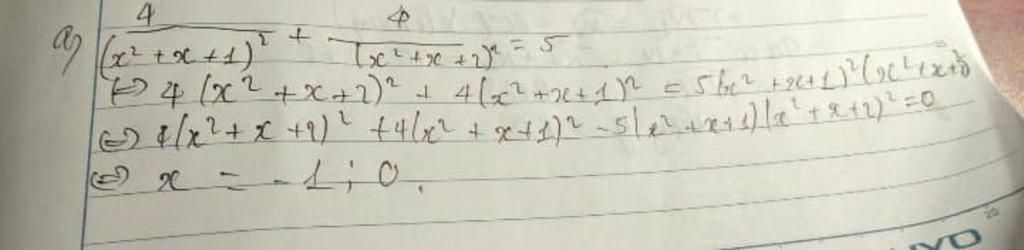 a) 4/(x² + x + 1)² + 4/(x² + x + 2)² = 5
⇔ 4(x² + x + 2)² + 4(x² + x + 1)² = 5(x² + x + 1)²(x² + x +
⇔ 4(x² + x + 2)² + 4(x² + x + 1)² - 5(x² + x + 1)(x² + x + 2)² = 0
⇔ x = -1; 0.
20